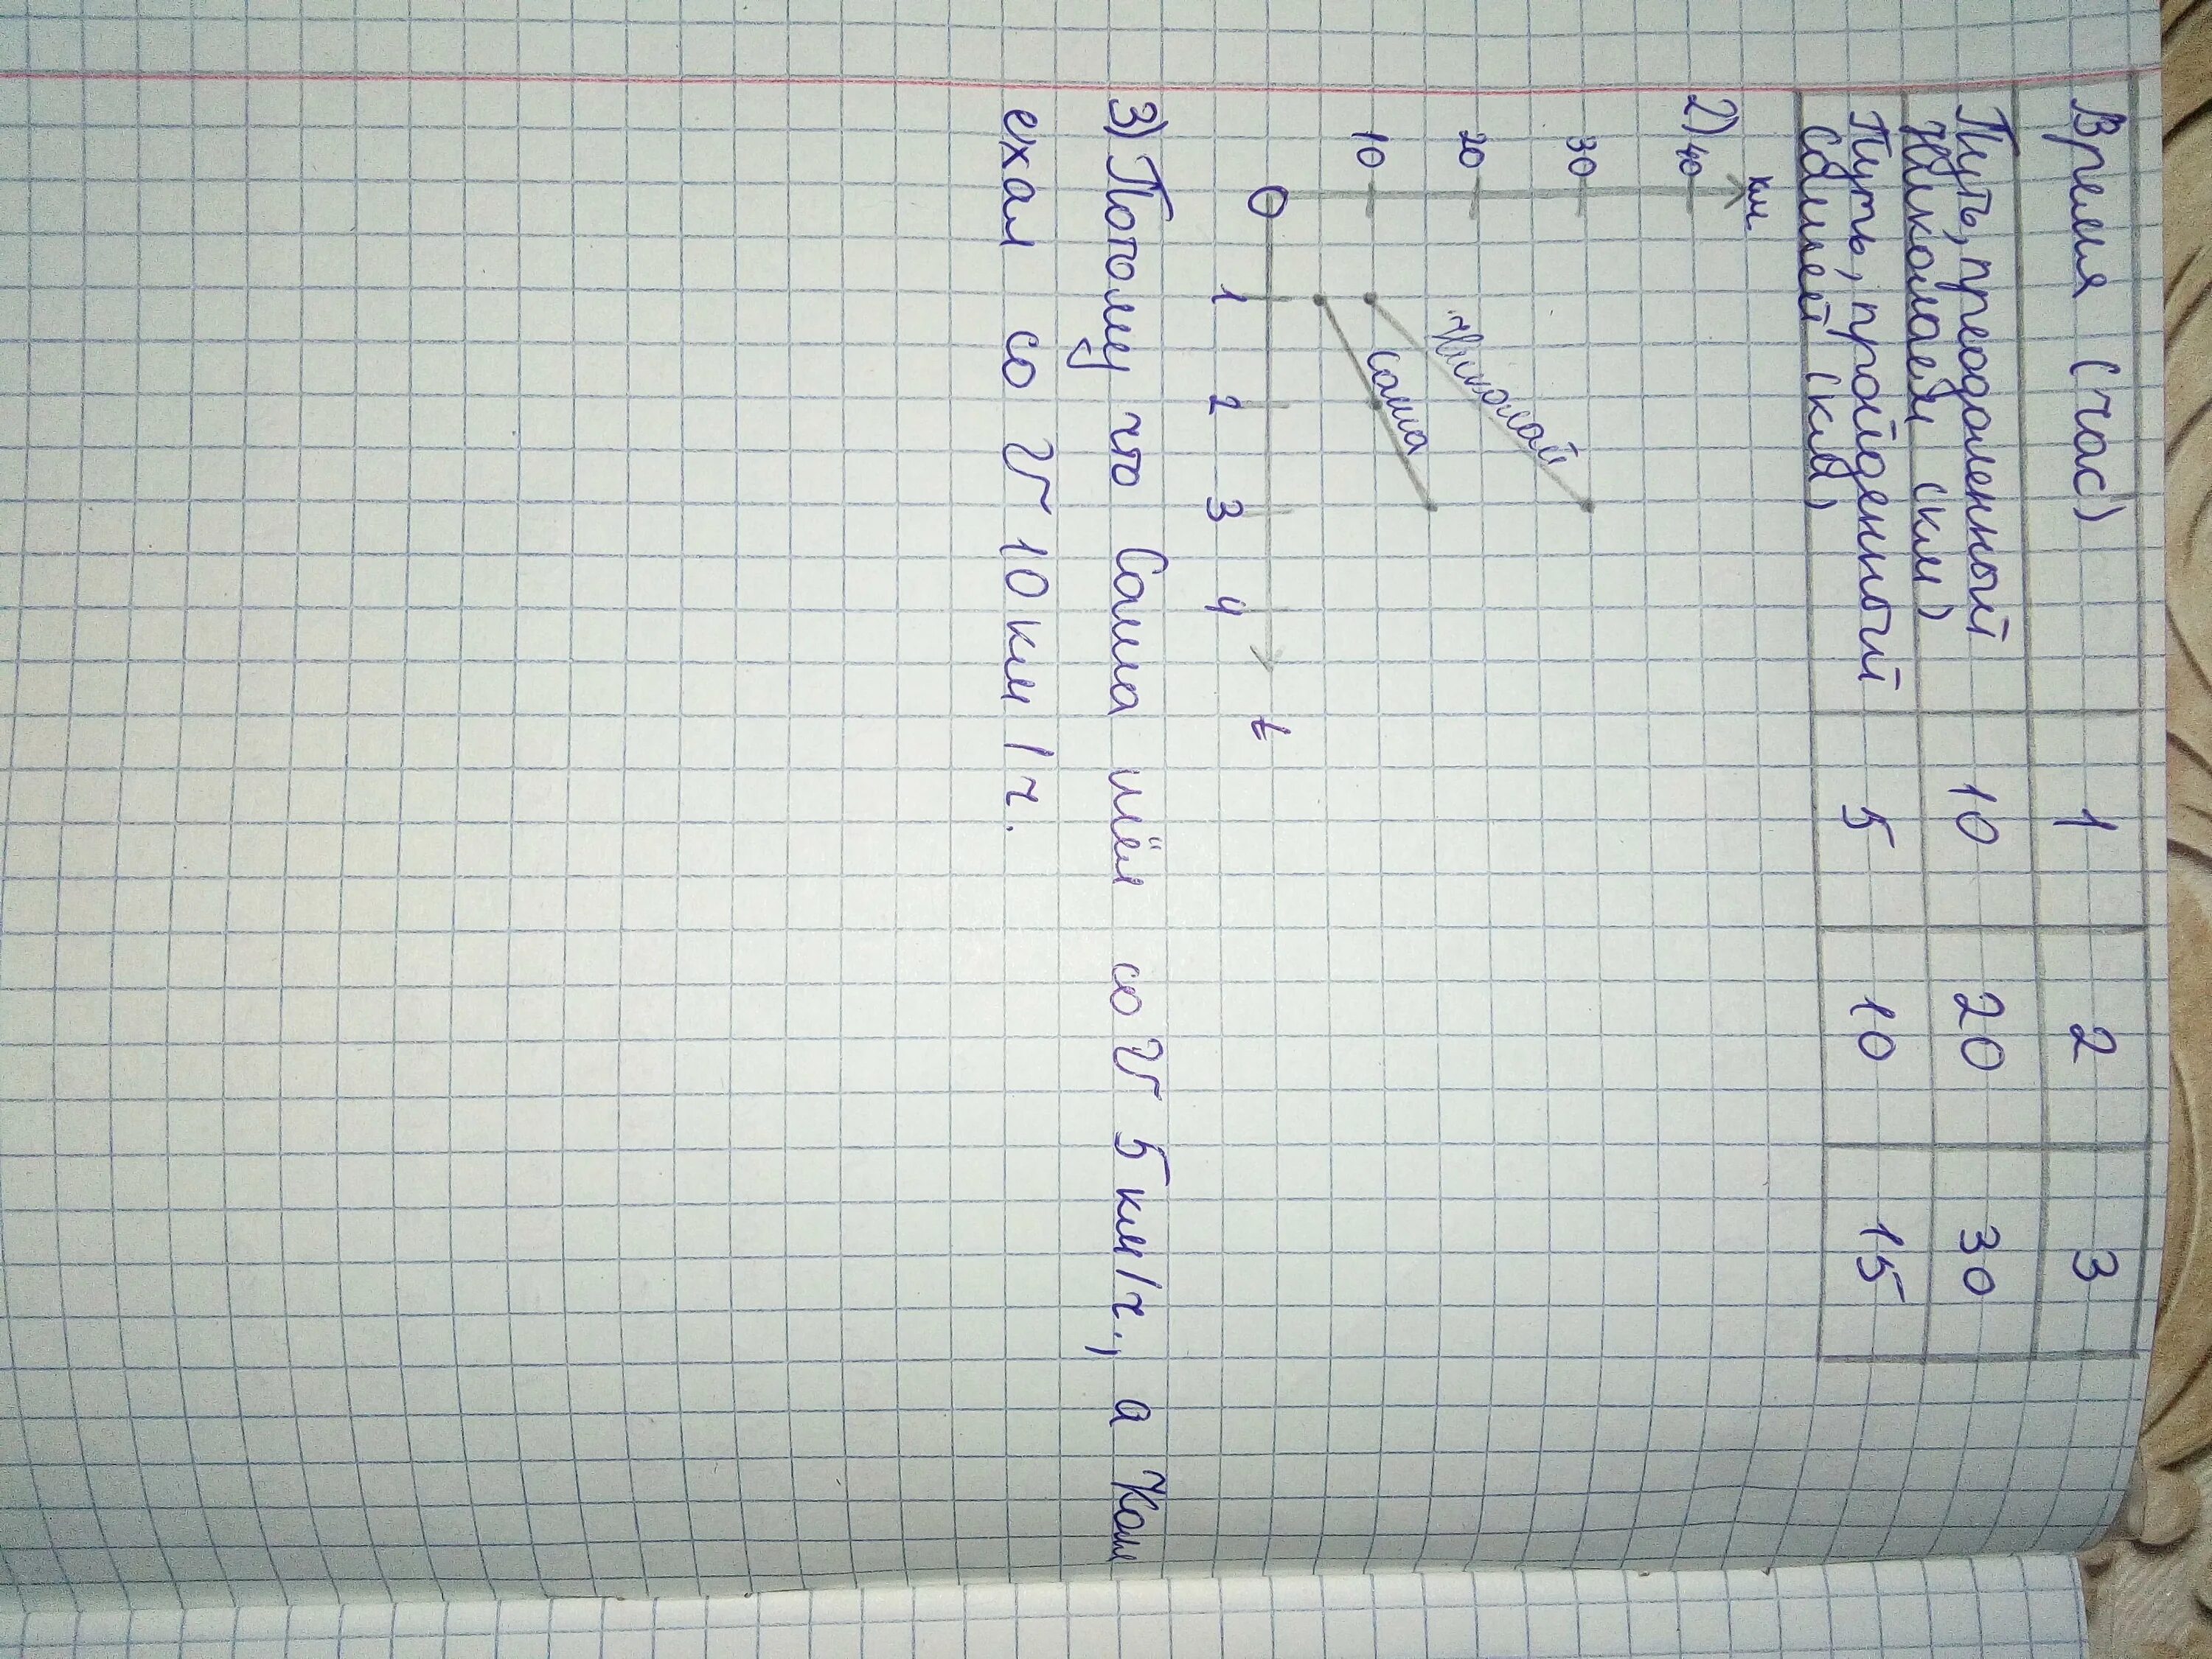 Время (час) 1 2 3
Путь, преодоленный 10 20 30
Николаем (км)
Путь, пройденный 5 10 15
Сашей (км)
2) км.
40
30
20
10
0
Николай
Саша
1 2 3 4 t
3) Потому что Саша шёл со V 5 км/ч., а Коля
ехал со V 10 км/ч.